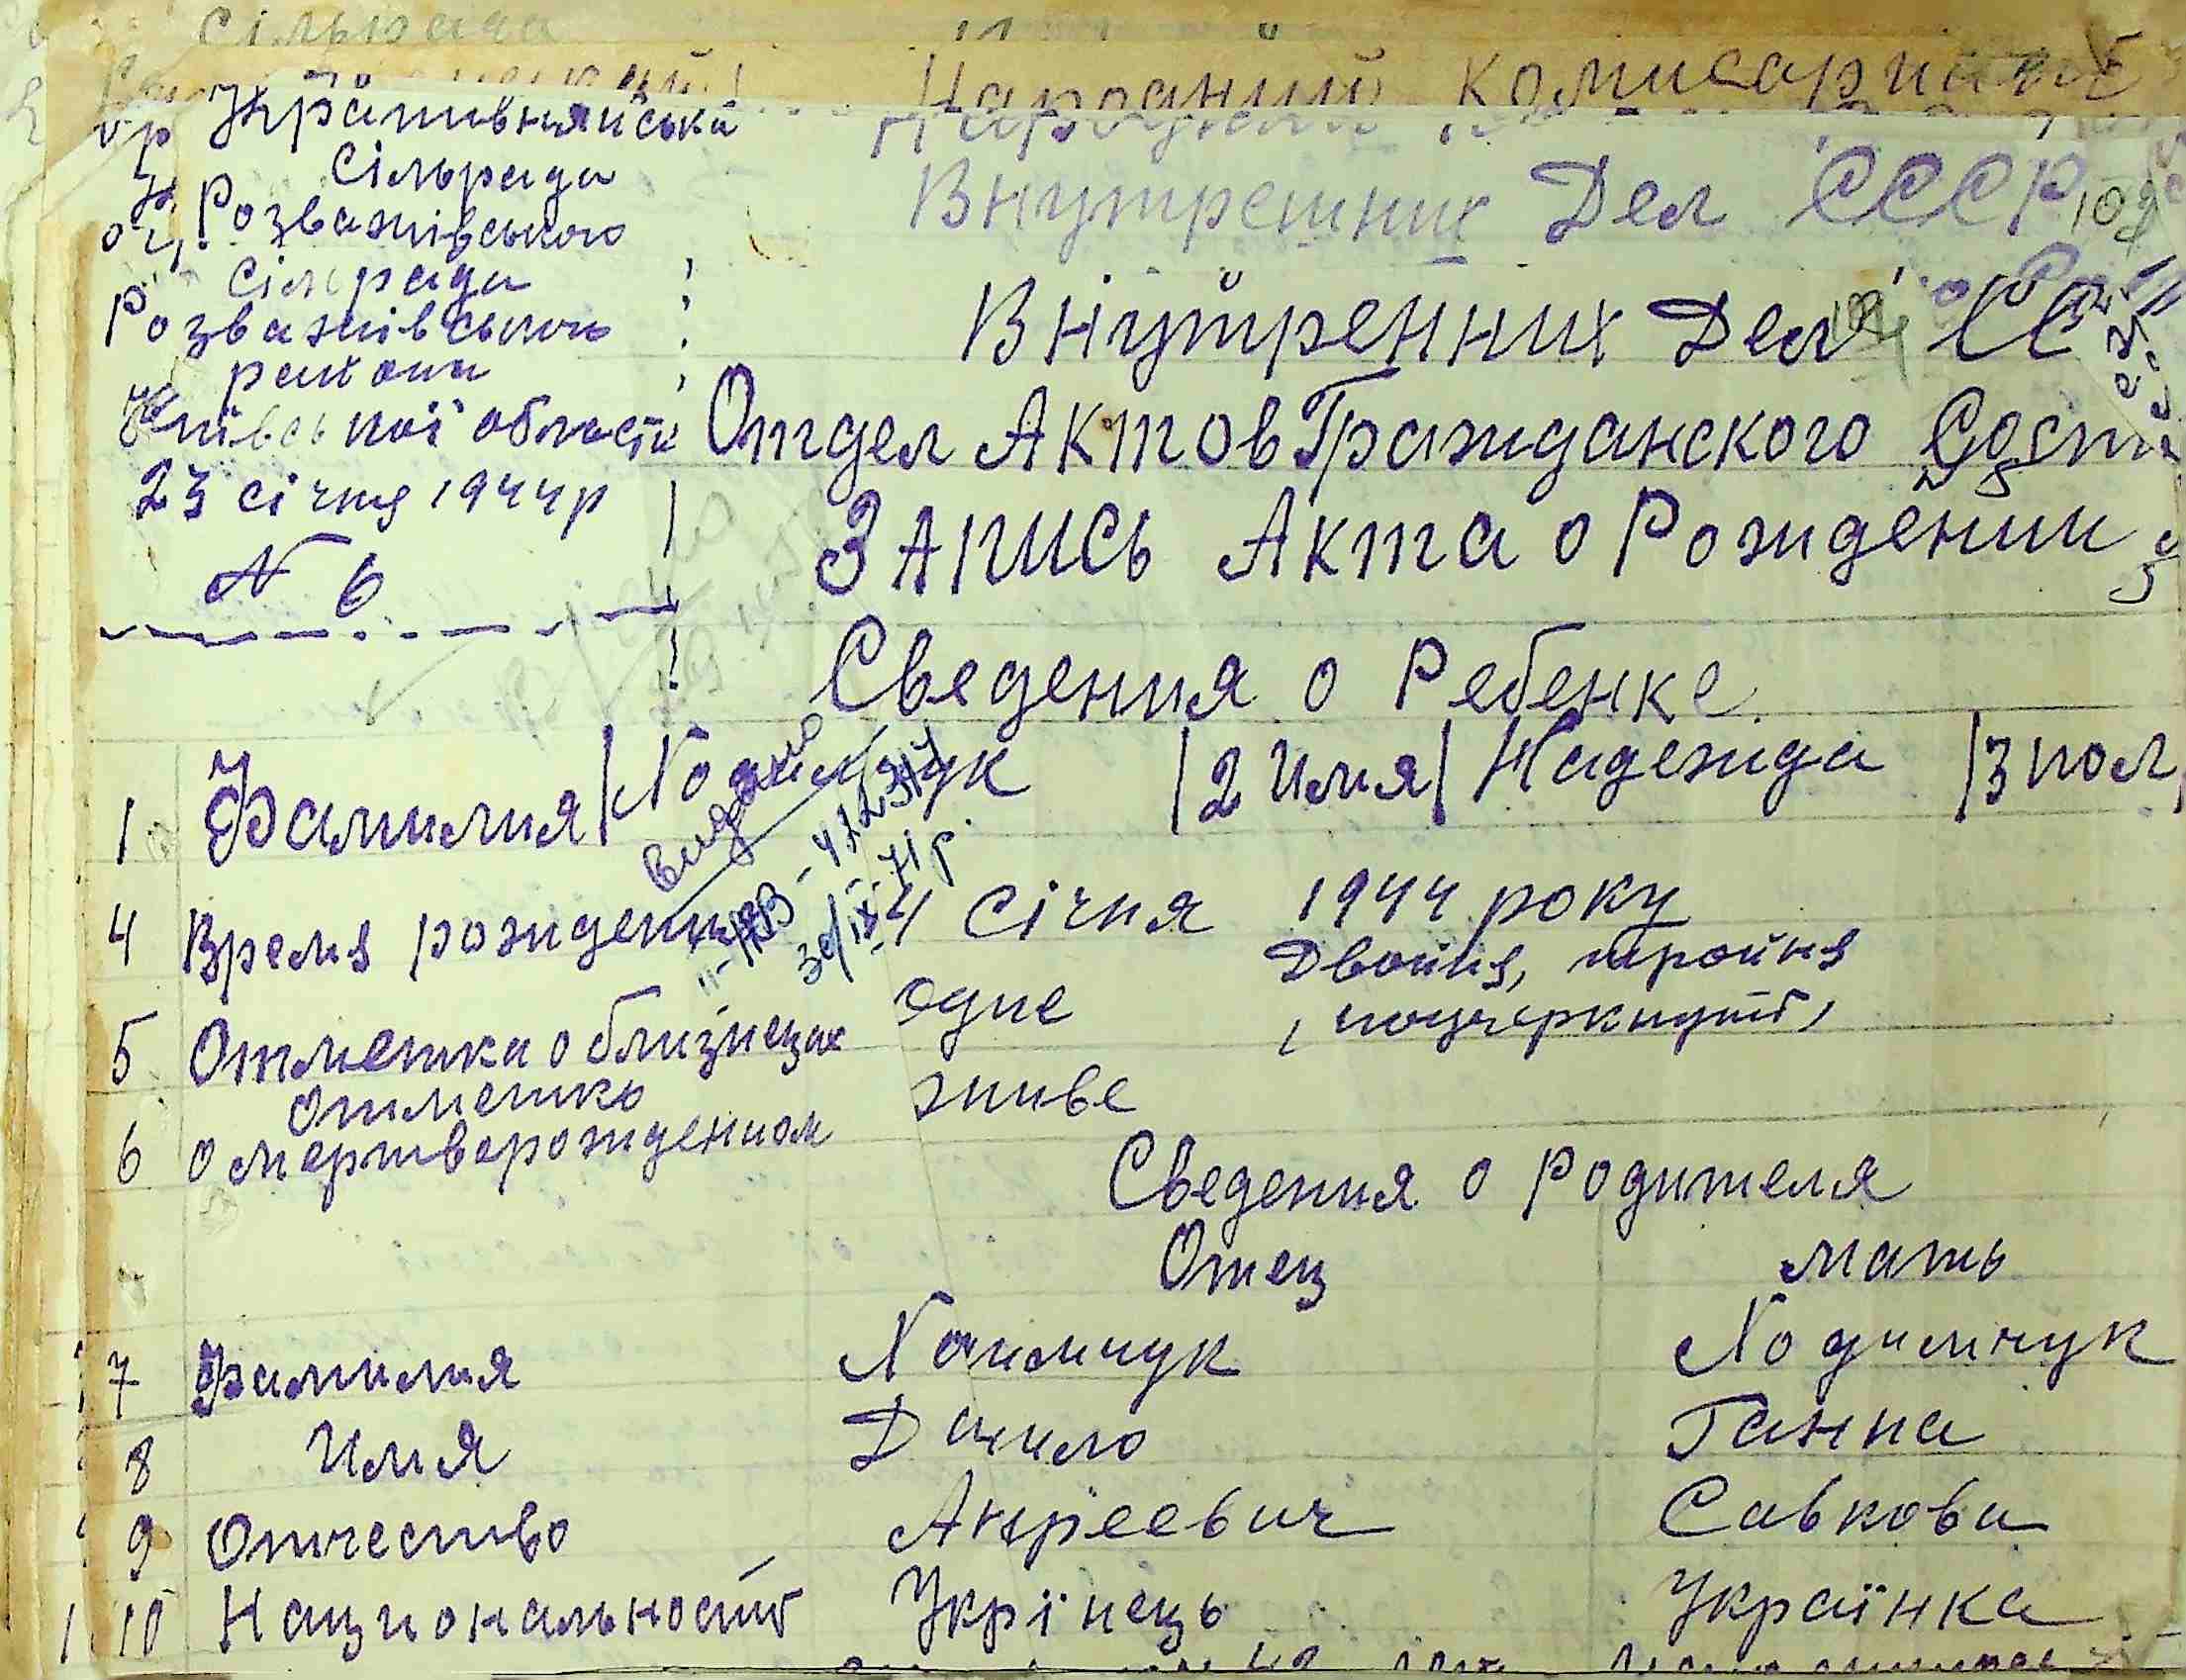 сільрада
Народний Комисариат
Кративнянська
сільрада
Розважівського
сільрада
Розважівського
району
Київської області
23 січня 1944 р
N 6
Внутрешних Дел СССР
Внутренних Дел СС
Отдел Актов Гражданского Состо
Запись Акта о Рождении
Сведения о Ребенке
1 Фамилия | Ходимчук | 2 Имя | Надежда | 3 пол
видано
30/IX-71 р.
4 Время рождения 4 Січня 1944 року
5 Отметка о близнецах одне Двойня, тройня
, подчеркнуть,
6 отметка о мертворожденном живе
Сведения о родителя
Отец мать
7 Фамилия Хоимчук Ходимчук
8 Имя Данило Ганна
9 Отчество Андреевич Савкова
10 Национальность Укрінець Українка